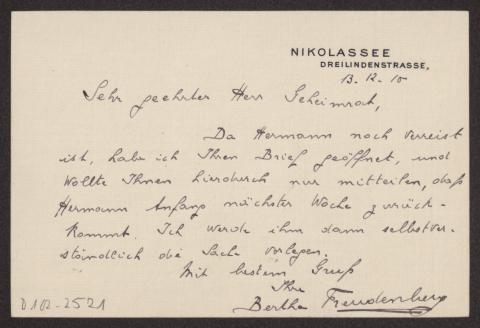 NIKOLASSEE
DREILINDENSTRASSE,
13-12-10
Sehr geehrter Herr Geheimrat,
Da Hermann noch verreist
ist, habe ich Ihren Brief geöffnet, und
wollte Ihnen hierdurch nur mitteilen, daß
Hermann Anfang nächster Woche zurück-
kommt. Ich werde ihm dann selbstver-
ständlich die Sache vorlegen.
Mit bestem Gruß
Ihre
Bertha Freudenberg
D102-2521